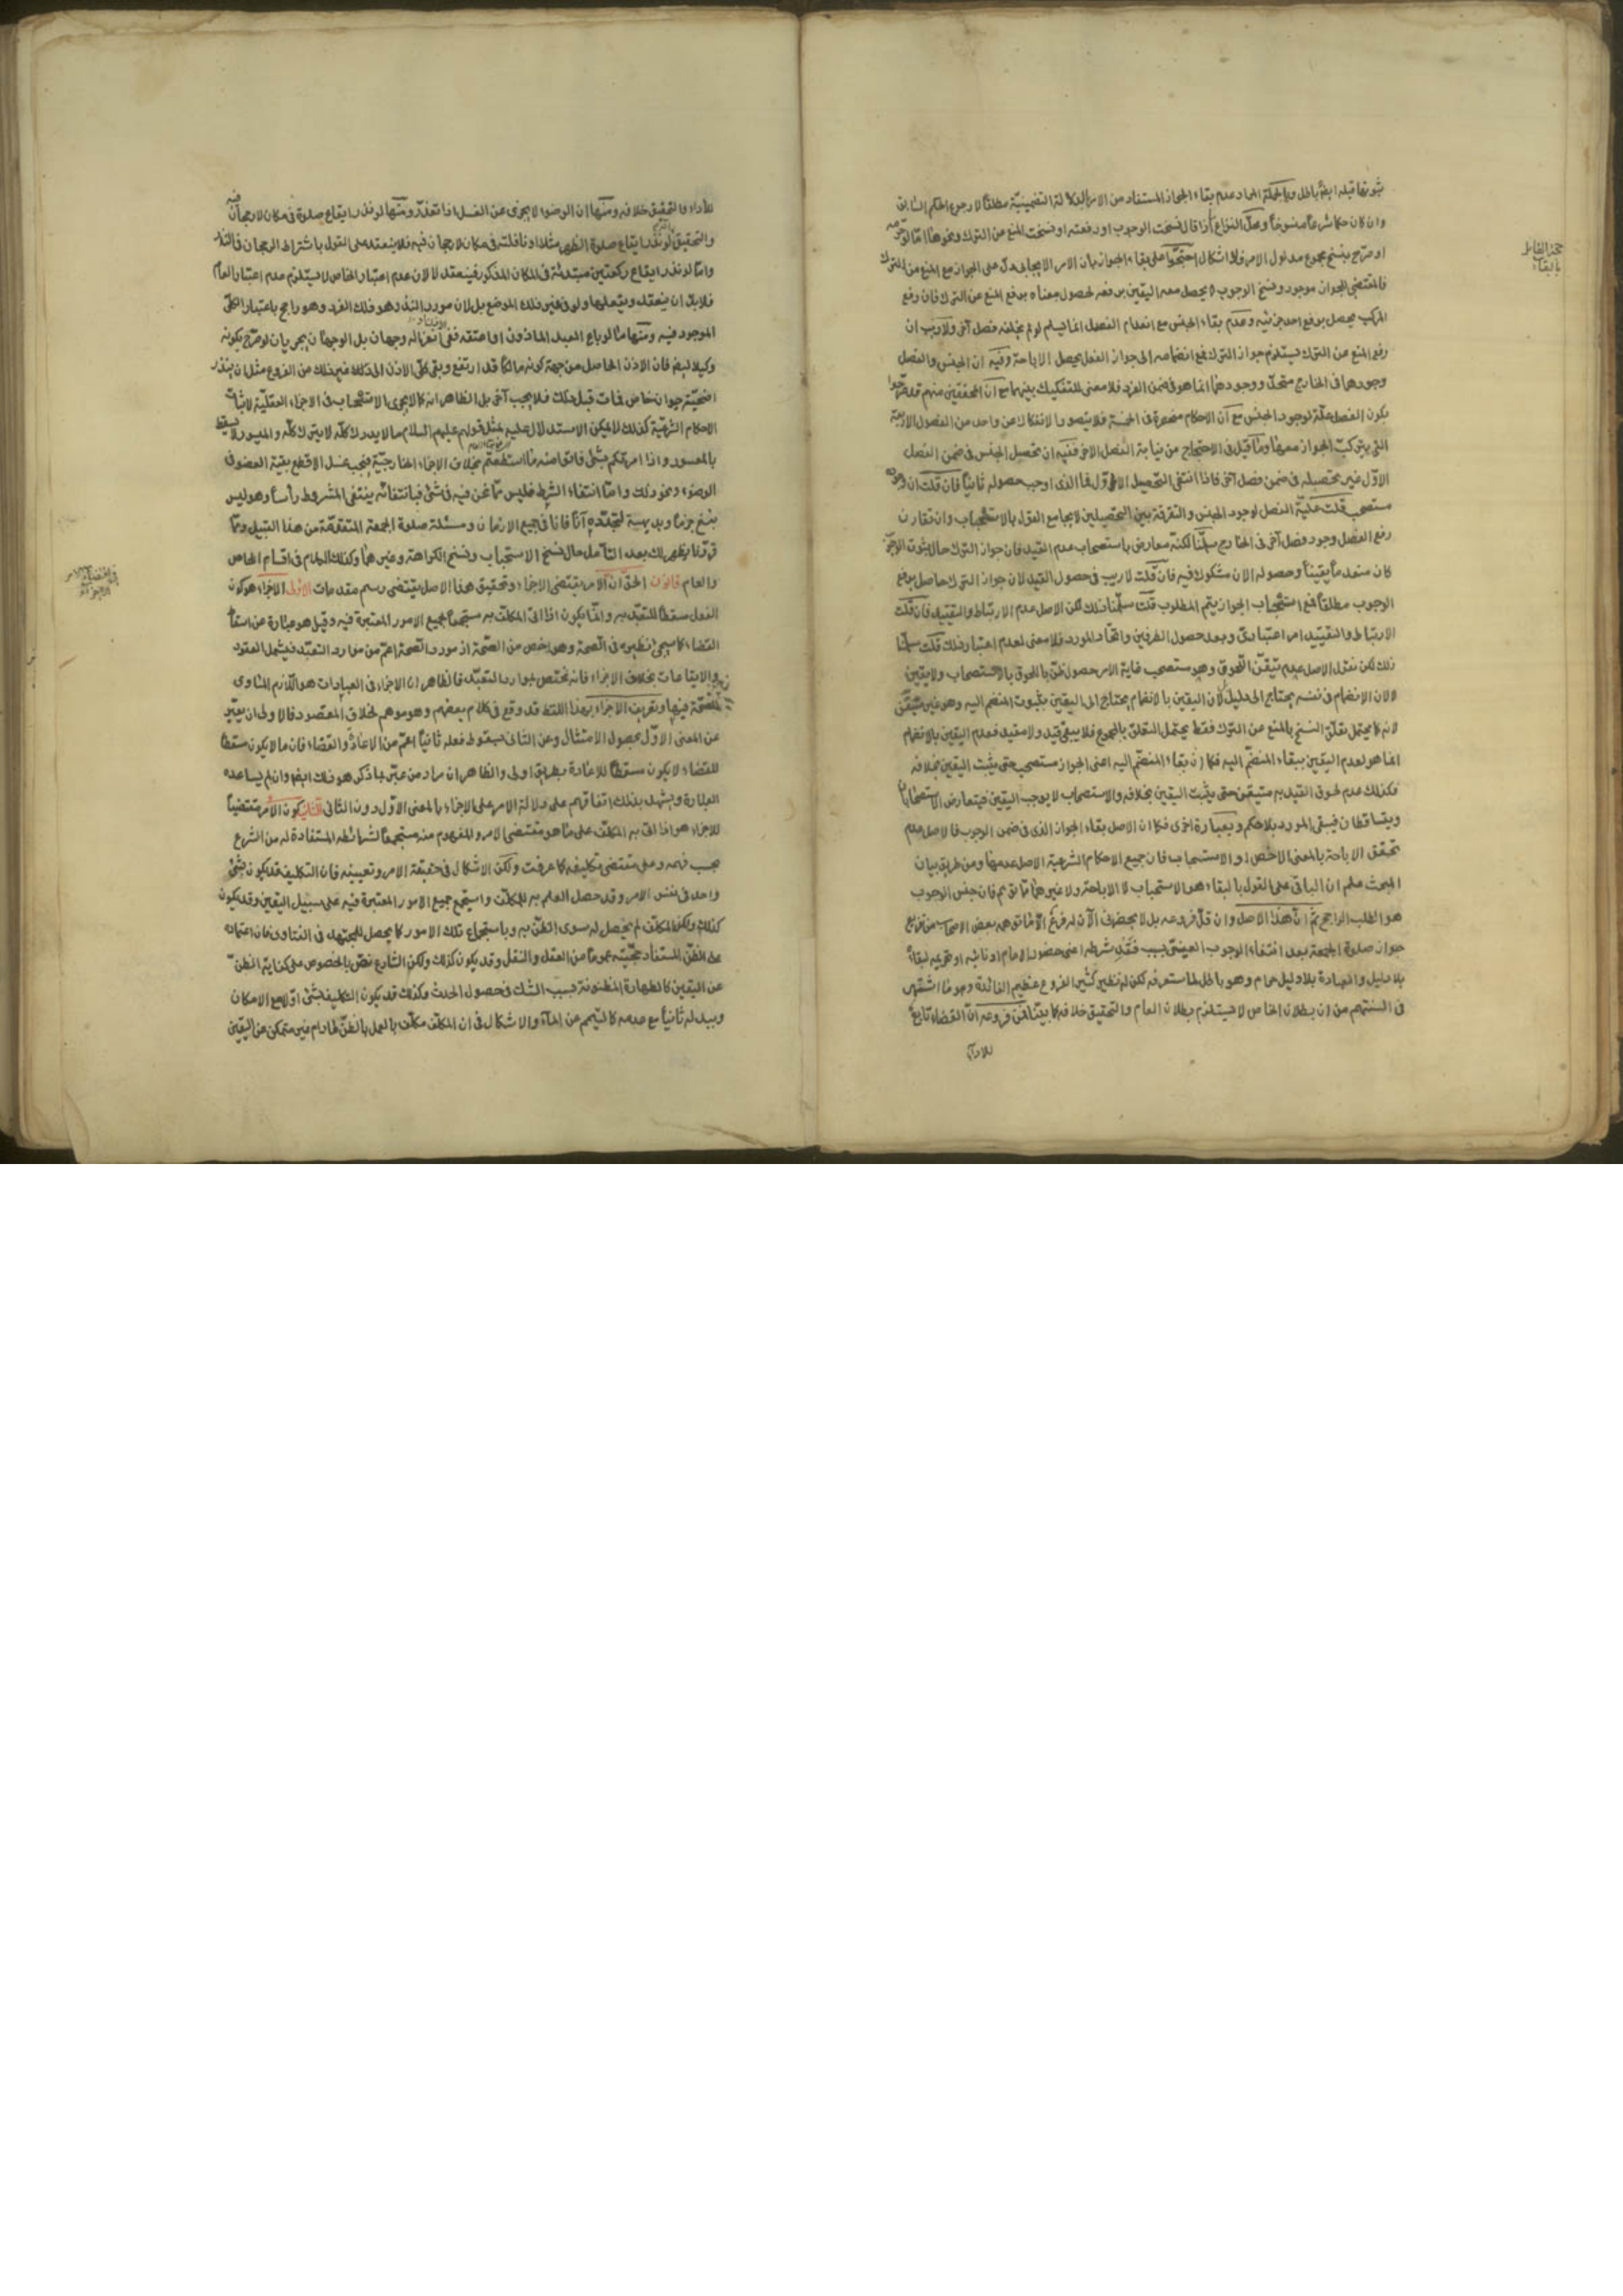 ثبوتها قبله ايضا باطل وبالجملة المراد عدم بقاء الجواز المستفاد من الامر بالدلالة التضمنية مطلقا لا رجوع الحكم السابق
وان كان حكما شرعيا منسوخا ومحل النزاع اذا قال نسخت الوجوب او رفعته او نسخت المنع عن الترك ونحوها امّا لو حرمه
او صرح بنسخ مجموع مدلول الامر فلا اشكال احتجوا على بقاء الجواز بان الامر الايجابى دل على الجواز مع المنع من الترك
فالمقتضى للجواز موجود ونسخ الوجوب لا يحصل معه اليقين برفعه لحصول معناه برفع المنع عن الترك فان رفع
المركب يحصل برفع احد جزئيه وعدم بقاء الجنس مع انعدام الفصل انما يسلم لو لم يخلفه فصل آخر ولا ريب ان
رفع المنع عن الترك يستلزم جواز الترك فمع انضمامه الى جواز الفعل يحصل الاباحة وفيه ان الجنس والفصل
وجودهما فى الخارج متحد ووجودهما انما هو فى ضمن الفرد فلا معنى للتفكيك بينهما مع ان المحققين منهم قد صرحوا
بكون الفصل علة لوجود الجنس مع ان الاحكام منحصرة فى الخمسة فلا يتصور الانفكاك عن واحد من الفصول الاربعة
التى يتركب الجواز معها وما قيل فى الاحتجاج من نيابة الفصل الاخر ففيه ان تحصيل الجنس فى ضمن الفصل
الاول غير تحصيله فى ضمن فصل آخر فاذا انتفى التحصيل الاول فما الذى اوجب حصوله ثانيا فان قلت ان وجوده
مستصحب قلت علية الفصل لوجود الجنس والتفرقة بين التحصيلين لا يجامع القول بالاستصحاب وان تقارن
رفع الفصل وجود فصل آخر فى الخارج سلمنا لكنه معارض باستصحاب عدم القيد فان جواز الترك حال ثبوت الوجوب
كان منعدما يقينا وحصوله الان مشكوك فيه فان قلت لا ريب فى حصول القيد لان جواز الترك حاصل برفع
الوجوب مطلقا فمع استصحاب الجواز يتم المطلوب قلت سلمنا ذلك لكن الاصل عدم الارتباط والتقييد فان قلت
الارتباط والتقييد امر اعتبارى وبعد حصول الطرفين واتحاد المورد فلا معنى لعدم اعتبار ذلك قلت سلمنا
ذلك لكن نقول الاصل عدم تيقن اللحوق وهو مستصحب غاية الامر حصول ظن باللحوق بالاستصحاب ولا يقين
لا لان الانضمام فى نفسه يحتاج الى دليل لان اليقين بالانضمام يحتاج الى اليقين بثبوت المنضم اليه وهو غير متيقن
لانه كما يحتمل تعلق النسخ بالمنع عن الترك فقط يحتمل التعلق بالمجموع فلا يبقى قيد ولا مقيد فعدم اليقين بالانضمام
انما هو لعدم اليقين ببقاء المنضم اليه فكما ان بقاء المنضم اليه اعنى الجواز مستصحب حتى يثبت اليقين بخلافه
فكذلك عدم لحوق القيد به متيقن حتى يثبت اليقين بخلافه والاستصحاب لا يوجب اليقين فيتعارض الاستصحابان
ويتساقطان فيبقى المورد بلا حكم وبعبارة اخرى فكما ان الاصل بقاء الجواز الذى فى ضمن الوجوب فالاصل عدم
تحقق الاباحة بالمعنى الاخص او الاستحباب فان جميع الاحكام الشرعية الاصل عدمها ومن طريق بيان
المبحث علم ان الباقى على القول بالبقاء هو الاستحباب لا الاباحة ولا غيرهما مما توهم فان جنس الوجوب
هو الطلب الراجح ثم ان هذا الاصل وان قل فروعه بل لا يحضرنى الآن له فرع الا ما توهمه بعض الاصحاب من تفريع
جواز صلوة الجمعة بعد انتفاء الوجوب العينى بسبب فقد شرطه اعنى حضور الامام او نائبه او تحريمه لبقائه
بلا دليل والعبادة بلا دليل حرام وهو باطل لما ستعرفه لكن له نظير كثير الفروع عظيم الفائدة وهو ما اشتهر
فى السنتهم من ان بطلان الخاص لا يستلزم بطلان العام والتحقيق خلافه كما بينا فمن فروعه ان القضاء تابع
للاداء
حجة القائل
بالبقاء
للاداء والتحقيق خلافه ومنها ان الوضوء لا يجزى عن الغسل اذا تعذر ومنها لو نذر ايقاع صلوة فى مكان لا رجحان فيه
والتحقيق لو نذر ايقاع صلوة الظهر مثلا او نافلته فى مكان لا رجحان فيه فلا ينعقد على القول باشتراط الرجحان فى النذر
وامّا لو نذر ايقاع ركعتين مبتدئة فى المكان المذكور فينعقد لا لان عدم اعتبار الخاص لا يستلزم عدم اعتبار العام
فلابد ان ينعقد ويفعلها ولو فى غير ذلك الموضع بل لان مورد النذر هو ذلك الفرد وهو راجح باعتبار الكلى
الموجود فيه ومنها ما لو باع العبد الماذون او اعتقه ففى انعزاله وجهان بل الوجهان يجريان لو صرح بكونه
وكيلا ايضا فان الاذن الحاصل من جهة كونه مالكا قد ارتفع وبقى كلى الاذن الى ذلك غير ذلك من الفروع مثل ان ينذر
اضحية حيوان خاص فمات قبل ذلك فلا يجب آخر بل الظاهر انه كما لا يجرى الاستصحاب فى الاجزاء العقلية لاثبات
الاحكام الشرعية كذلك لا يمكن الاستدلال عليه بمثل قولهم عليهم السلام ما لا يدرك كله لا يترك كله والميسور لا يسقط
بالمعسور واذا امرتكم بشئ فاتوا منه ما استطعتم بخلاف الاجزاء الخارجية فيجب غسل الاقطع بقية العضو فى
الوضوء ونحو ذلك وامّا انتفاء الشرط فليس مما نحن فيه فى شئ فبانتفائه ينتفى المشروط رأسا وهو ليس
بنسخ جزما وبديهية لتجدده آنا فانا فى جميع الازمان ومسئلة صلوة الجمعة المتقدمة من هذا القبيل ومما
قررنا يظهر لك بعد التأمل حال نسخ الاستحباب ونسخ الكراهة وغيرها وكذلك الكلام فى اقسام الخاص
والعام قانون الحق ان الامر يقتضى الاجزاء وتحقيق هذا الاصل يقتضى رسم مقدمات الاولى الاجزاء هو كون
الفعل مسقطا للتعبد به وانما يكون اذا اتى المكلف به مستجمعا لجميع الامور المعتبرة فيه وقيل هو عبارة عن اسقاط
القضاء كما سيجئ نظيره فى الصحة وهو اخص من الصحة اذ مورد الصحة اعم من موارد التعبد فيشمل العقود
والايقاعات بخلاف الاجزاء فانه يختص بموارد التعبد فالظاهر ان الاجزاء فى العبادات هو اللازم المساوى
للصحة فيها وتعريف الاجزاء بهذا اللفظ قد وقع فى كلام بعضهم وهو موهم لخلاف المقصود فالاولى ان يعبر
عن المعنى الاول بحصول الامتثال وعن الثانى بسقوط فعله ثانيا اعم من الاعادة والقضاء فان ما لا يكون مسقطا
للقضاء لا يكون مسقطا للاعادة بطريق اولى والظاهر ان مراد من عبر بما ذكر هو ذلك ايضا وان لم يساعده
العبارة ويشهد بذلك اتفاقهم على دلالة الامر على الاجزاء بالمعنى الاول دون الثانى الثانية كون الامر مقتضيا
للاجزاء هو اذا اتى به المكلف على ما هو مقتضى الامر والمفهوم منه مستجمعا لشرائطه المستفادة له من الشرع
بحسب فهمه وعلى مقتضى تكليفه كما عرفت ولكن الاشكال فى حقيقة الامر وتعيينه فان التكليف قد يكون بشئ
واحد فى نفس الامر وقد حصل العلم به للمكلف واستجمع جميع الامور المعتبرة فيه على سبيل اليقين وقد يكون
كذلك ولكن المكلف لم يحصل له سوى الظن به وباستجماع تلك الامور كما يحصل للمجتهد فى الفتاوى فان اعتماده
على الظن المستفاد حجيته عموما من العقل والنقل وقد يكون كذلك ولكن الشارع نص بالخصوص على كفاية الظن
عن اليقين كالطهارة المظنونة بسبب الشك فى حصول الحدث وكذلك قد يكون التكليف بشئ اولا مع الامكان
وببدله ثانيا مع عدمه كالتيمم عن الماء والاشكال فى ان المكلف مكلف بالعمل بالظن ما دام غير متمكن عن اليقين
فى اقتضاء الامر
الاجزاء